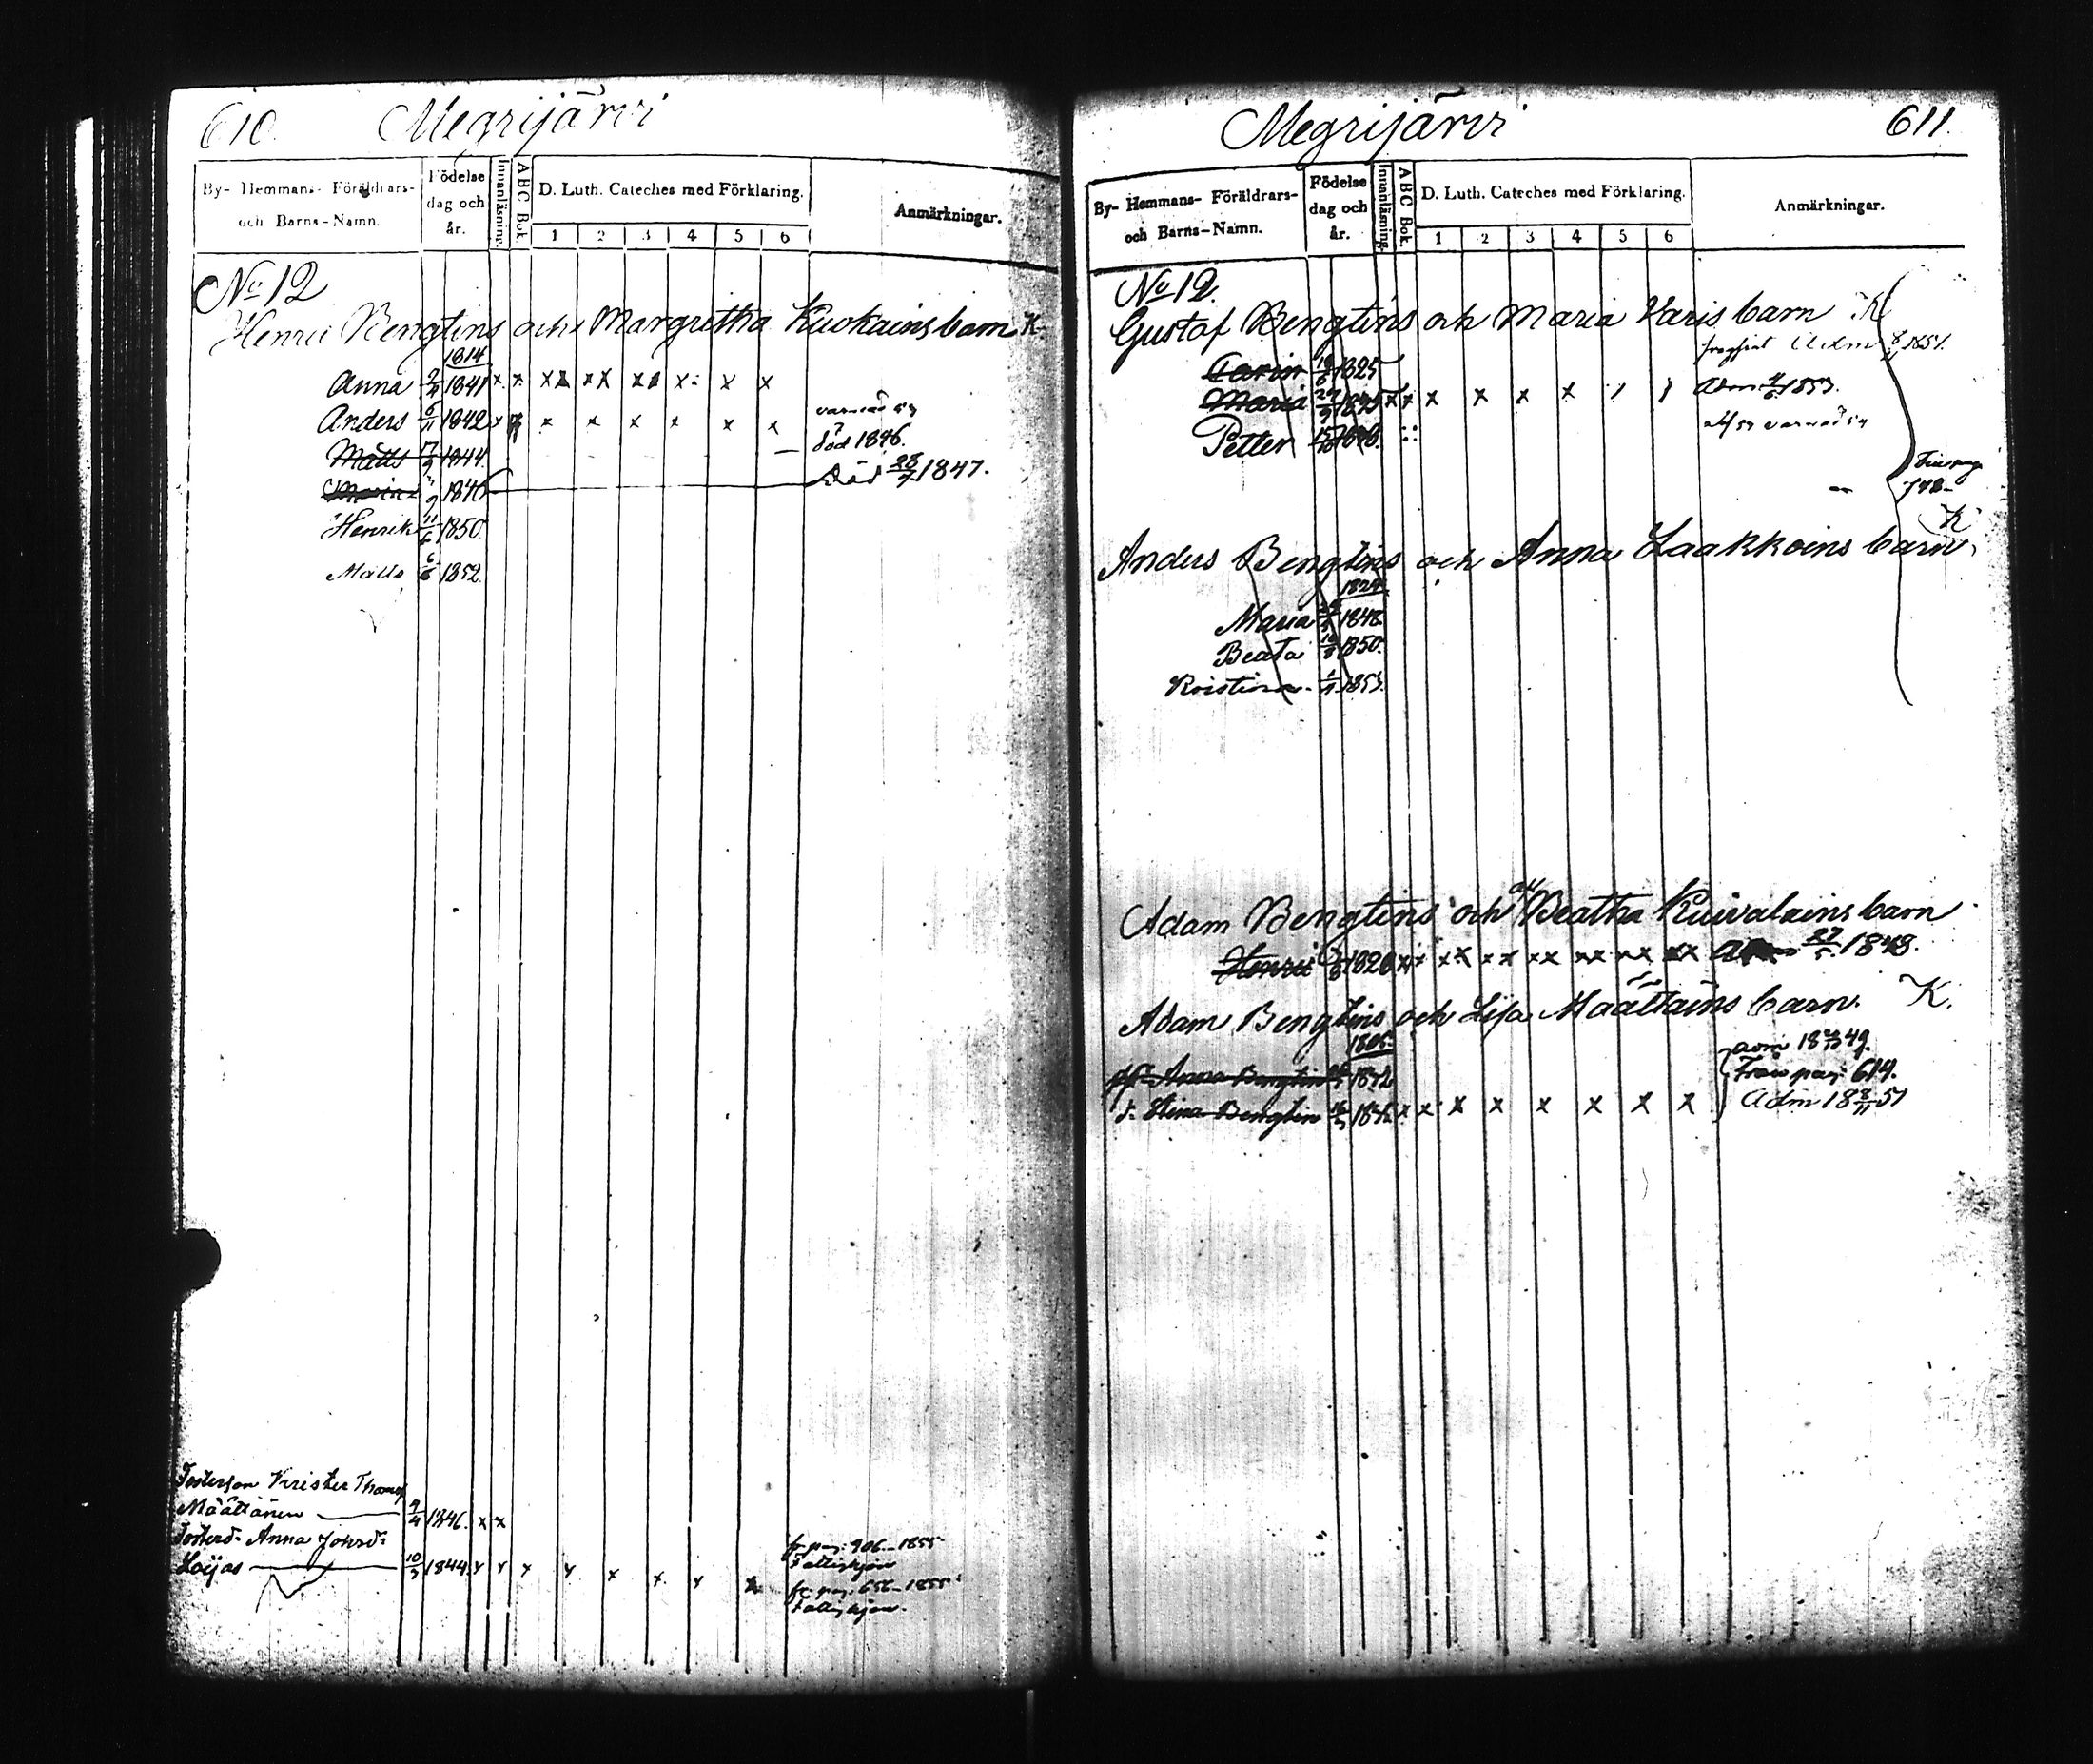 610. Megrijärvi
By- Hemmans- Föräldrars- och Barns-Namn.
Födelse dag och år.
Innanläsning.
ABC Bok.
D. Luth. Cateches med Förklaring.
1 2 3 4 5 6
Anmärkningar.
No 12
Henric Bengtins och Margretha Kuokains barn K.
1814
Anna 1841 x x x x x x x x
Anders 6/11 1842 x x x x x x x
död 1846.
Matts 1844.
Maria 1846 Död 28/7 1847.
Henrik 11/6 1850.
Matts 6/6 1852.
Fosterson Krister Thomas
Määttänen 4/4 1846. x x
Fosterd: Anna Johsd:
Loijas 10/3 1844. x x x x x x x x
fr pag: 906 - 1855
fr. pag: 656 - 1855
Megrijärvi 611.
By- Hemmans- Föräldrars- och Barns-Namn.
Födelse dag och år.
Innanläsning.
ABC Bok.
D. Luth. Cateches med Förklaring.
1 2 3 4 5 6
Anmärkningar.
No 12.
Gustaf Bengtins och Maria Varis barn K
Carin 1825 Adm 1851.
Maria x x x x x x Adm 1853.
Petter
K
Anders Bengtins och Anna Laakkoins barn.
1824
Maria 1848
Beata 1850.
Kristina 1853.
Adam Bengtins och Beatha Kuivalains barn
Henric 1820 x x x x x x x x 27/5 1849.
Adam Bengtins och Lisa Määttäins barn. K.
1805.
Anna Bengtin 1832
adm 18 49.
Från pag: 614.
d: Stina Bengtin x x x x x x x x Adm 18 8/11 51